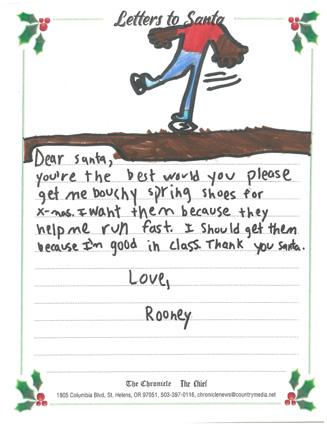 Letters to Santa
Dear santa,
you're the best would you please
get me bouchy spring shoes for
x-mas. I want them because they
help me run fast. I should get them
because I'm good in class. Thank you santa.
Love,
Rooney
The Chronicle The Chief
1805 Columbia Blvd, St. Helens, OR 97051, 503-397-0116, chroniclenews@countrymedia.net